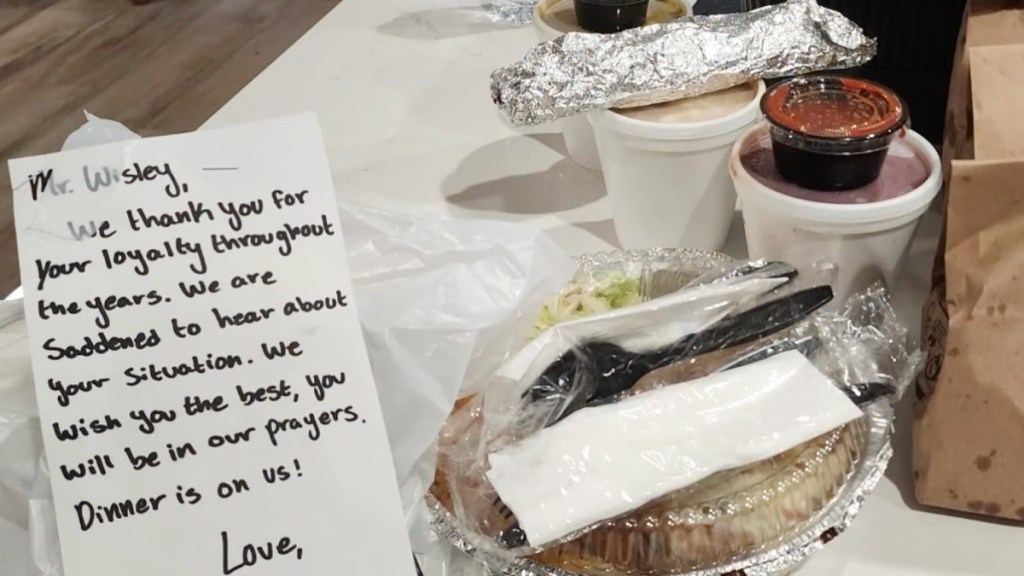 Mr. Wisley,
We thank you for
your loyalty throughout
the years. We are
Saddened to hear about
your situation. We
wish you the best, you
will be in our prayers.
Dinner is on us!
Love,